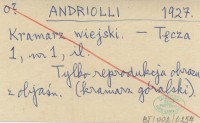 o? ANDRIOLLI 1927.
Kramarz wiejski. — Tęcza
1, nr 1, il.
Tylko reprodukcja obrazu
z objaśn. (kramarz góralski).